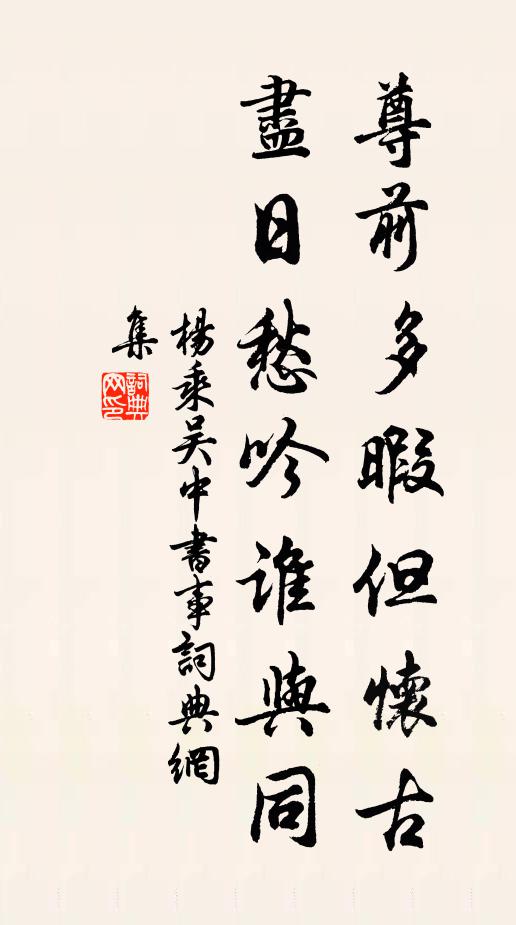 尊前多暇但懷古
盡日愁吟誰與同
楊乘吳中書事詞典網
集
詞典
网印